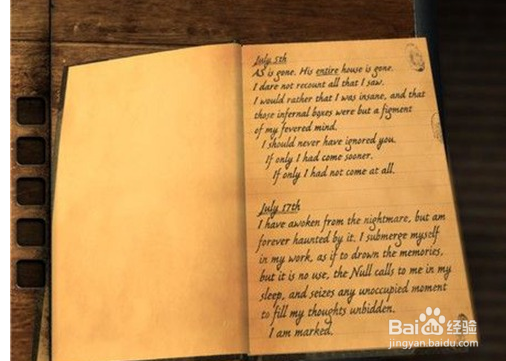 July 5th
AS is gone. His entire house is gone.
I dare not recount all that I saw.
I would rather that I was insane, and that
those infernal boxes were but a figment
of my fevered mind.
I should never have ignored you.
If only I had come sooner.
If only I had not come at all.
July 17th
I have awoken from the nightmare, but am
forever haunted by it. I submerge myself
in my work, as if to drown the memories,
but it is no use, the Null calls to me in my
sleep, and seizes any unoccupied moment
to fill my thoughts unbidden.
I am marked.
Bai经验
jingyan.baidu.com